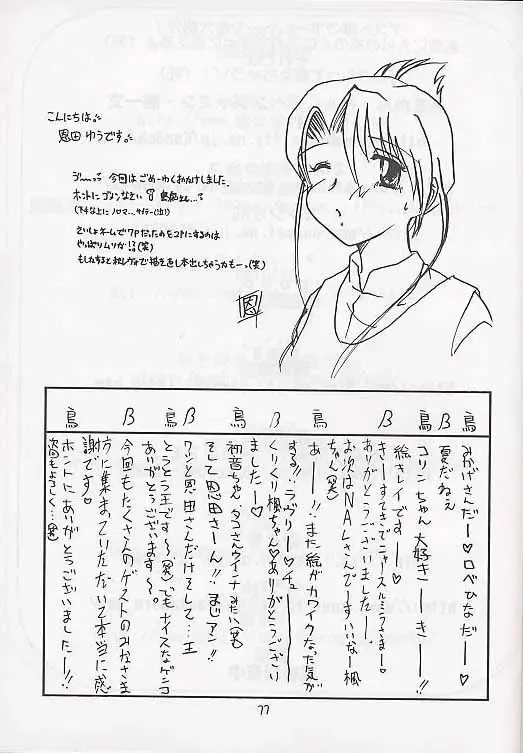 こんにちは。
恩田ゆうです。
う〜〜っ 今回はごめーわくおかけしました。
ホントにゴメンなさい
(下手な上にノロマ…サイテー(泣))
さいしょネームで7PだったのをユコトにするのはO
やっぱりムリか!?(笑)
もしかすると秋レヴォで描き直し本出しちゃうかもーっ(笑)
恩
鳥 みかげさんだー♡ロベひなだー♡
β 夏だねぇ
鳥 コリンちゃん大好きーーきーー!!
絵キレイですーー♡
β きーーすてきでニャースルララうまー♡
ありがとうございましたー!
お次はNALさんでーすいいなー楓
ちゃん(笑)
鳥 あー!!また絵がカワイクなった気が
する!!ラヴリーー♡チ。
β くりくり楓ちゃん♡ありがとうござい
ましたー♡
鳥 初音ちゃん、タコさんウインナみたい(笑)
β そして恩田さーん!!まじアン!
ワンと恩田さんだけそして…王
鳥 とうとう王ですー(笑)でナイスなゲンコ
ありがとうございます〜。
β 今回もたくさんのゲストのみなさま
方に集まっていただいて本当に感
謝です♡
鳥 ホントにありがとうございましたーー!!
次回もよろしく…(笑)
77